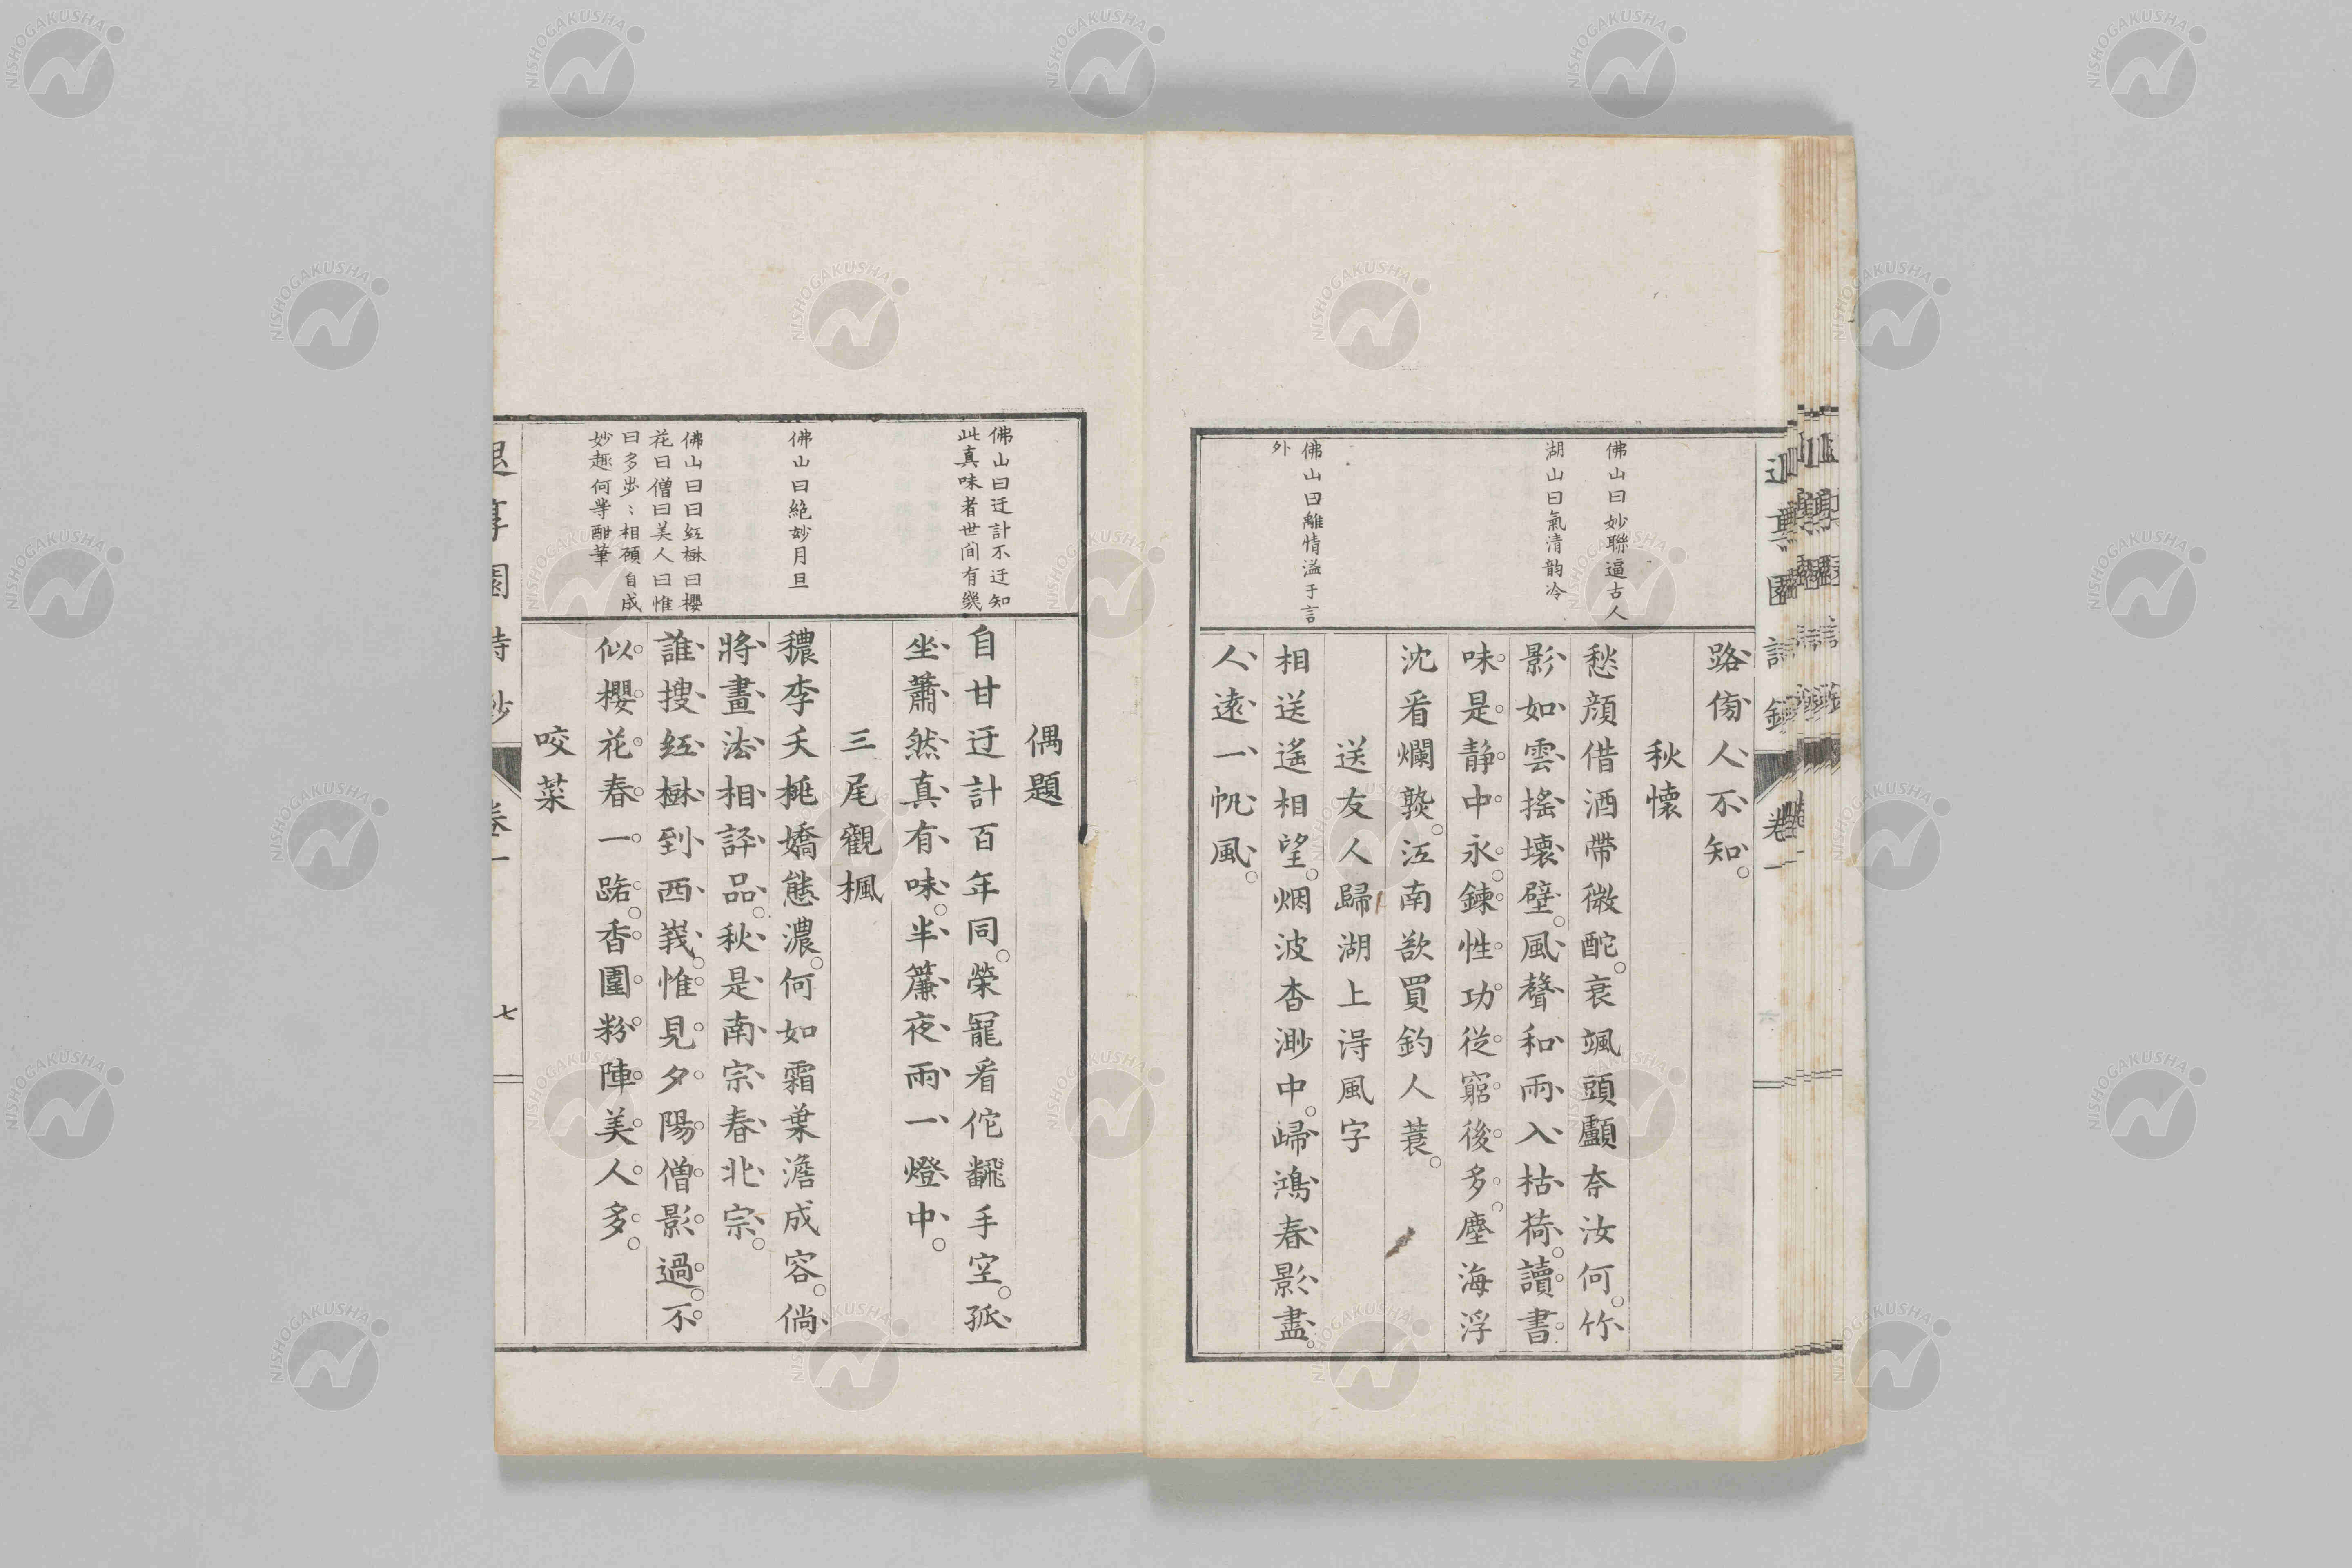 路傍人不知。
秋懷
愁顔借酒帶微酡。衰颯頭顱奈汝何。竹
影如雲搖壞壁。風聲和雨入枯荷。讀書
味是静中永。鍊性功從窮後多。塵海浮
沈看爛熟。江南欲買釣人蓑。
送友人歸湖上得風字
相送遙相望。烟波杳渺中。歸鴻春影盡。
人遠一帆風。
佛山曰妙聯逼古人
湖山曰氣清韵冷
佛山曰離情溢于言
外
偶題
自甘迂計百年同。榮寵看佗飜手空。孤
坐蕭然真有味。半簾夜雨一燈中。
三尾觀楓
穠李夭桃嬌態濃。何如霜葉澹成容。倘
將畫法相評品。秋是南宗春北宗。
誰搜紅樹到西峩。惟見夕陽僧影過。不
似櫻花春一路。香圍粉陣美人多。
咬菜
佛山曰迂計不迂知
此真味者世间有幾
佛山曰絶妙月旦
佛山曰曰紅樹曰櫻
花曰僧曰美人曰惟
曰多步〻相顧自成
妙趣何等酣筆
退享園詩鈔
卷一
七
NISHOGAKUSHA